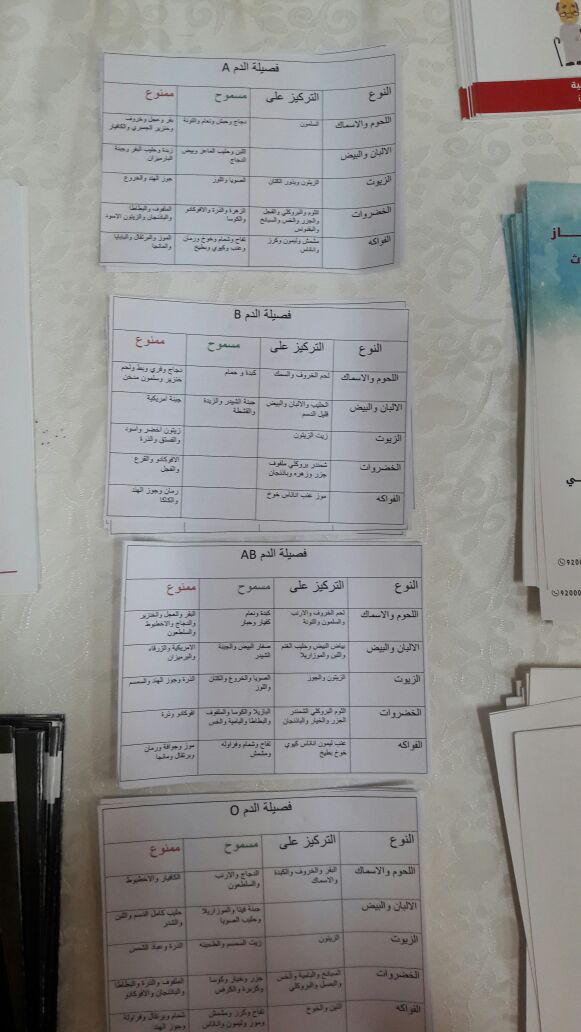 فصيلة الدم A
النوع التركيز على مسموح ممنوع
اللحوم والاسماك السلمون دجاج وحبش ونعام والتونة بقر وعجل وخروف وخنزير الجمبري والكافيار
الالبان والبيض اللبن وحليب الماعز وبيض الدجاج زبدة وحليب البقر وجبنة البارميزان
الزيوت الزيتون وبذور الكتان الصويا واللوز جوز الهند والخروع
الخضروات الثوم والبروكلي والفجل والجزر والخس والسبانخ والبقدونس الزهرة والذرة والافوكادو والكوسا الملفوف والبطاطا والباذنجان والزيتون الاسود
الفواكه مشمش وليمون وكرز واناناس تفاح وشمام وخوخ ورمان وعنب وكيوي وبطيخ الموز والبرتقال والبابايا والمانجا
فصيلة الدم B
النوع التركيز على مسموح ممنوع
اللحوم والاسماك لحم الخروف والسمك كبدة و حمام دجاج وفري وبط ولحم خنزير وسلمون مدخن
الالبان والبيض الحليب والالبان والبيض قليل الدسم جبنة الشيدر والزبدة والقشطة جبنة امريكية
الزيوت زيت الزيتون زيتون اخضر واسود والفستق والذرة
الخضروات شمندر بروكلي ملفوف جزر وزهره وباذنجان الافوكادو والقرع والفجل
الفواكه موز عنب اناناس خوخ رمان وجوز الهند والكاكا
فصيلة الدم AB
النوع التركيز على مسموح ممنوع
اللحوم والاسماك لحم الخروف والارنب والسلمون والتونة كبدة ونعام كفيار وحبار البقر والعجل والخنزير والدجاج والاخطبوط والسلطعون
الالبان والبيض بياض البيض وحليب الغنم واللبن والموزاريلا صفار البيض والجبنة الشيدر الامريكية والزرقاء والبرميزان
الزيوت الزيتون والجوز الصويا والخروع والكتان واللوز الذرة وجوز الهند والسمسم
الخضروات الثوم البروكلي الشمندر الجزر والخيار والباذنجان البازيلا والكوسا والملفوف والبطاطا والبامية والخس افوكادو وذرة
الفواكه عنب ليمون اناناس كيوي خوخ بطيخ تفاح وشمام وفراوله ومشمش موز وجوافة ورمان وبرتقال ومانجا
فصيلة الدم O
النوع التركيز على مسموح ممنوع
اللحوم والاسماك البقر والخروف والكبدة والاسماك الدجاج والارنب والسلطعون الكافيار والاخطبوط
الالبان والبيض جبنة فيتا والموزاريلا وحليب الصويا حليب كامل الدسم واللبن والشدر
الزيوت الزيتون زيت السمسم والطحينه الذرة وعباد الشمس
الخضروات السبانخ والبامية والخس والبصل والبروكلي جزر وخيار وكوسا وكزبرة والكرفس الملفوف والذرة والبطاطا والباذنجان والافوكادو
الفواكه التين والخوخ تفاح وكرز ومشمش وموز وليمون واناناس شمام وبرتقال وفراولة وجوز الهند
9200
92000